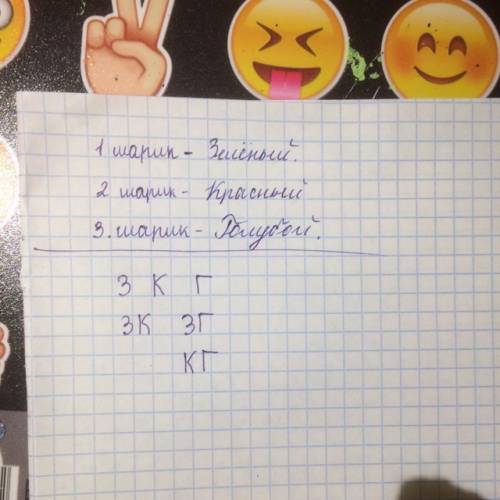 1 шарик - Зелёный.
2 шарик - Красный
3. шарик - Голубой.
З К Г
ЗК ЗГ
КГ